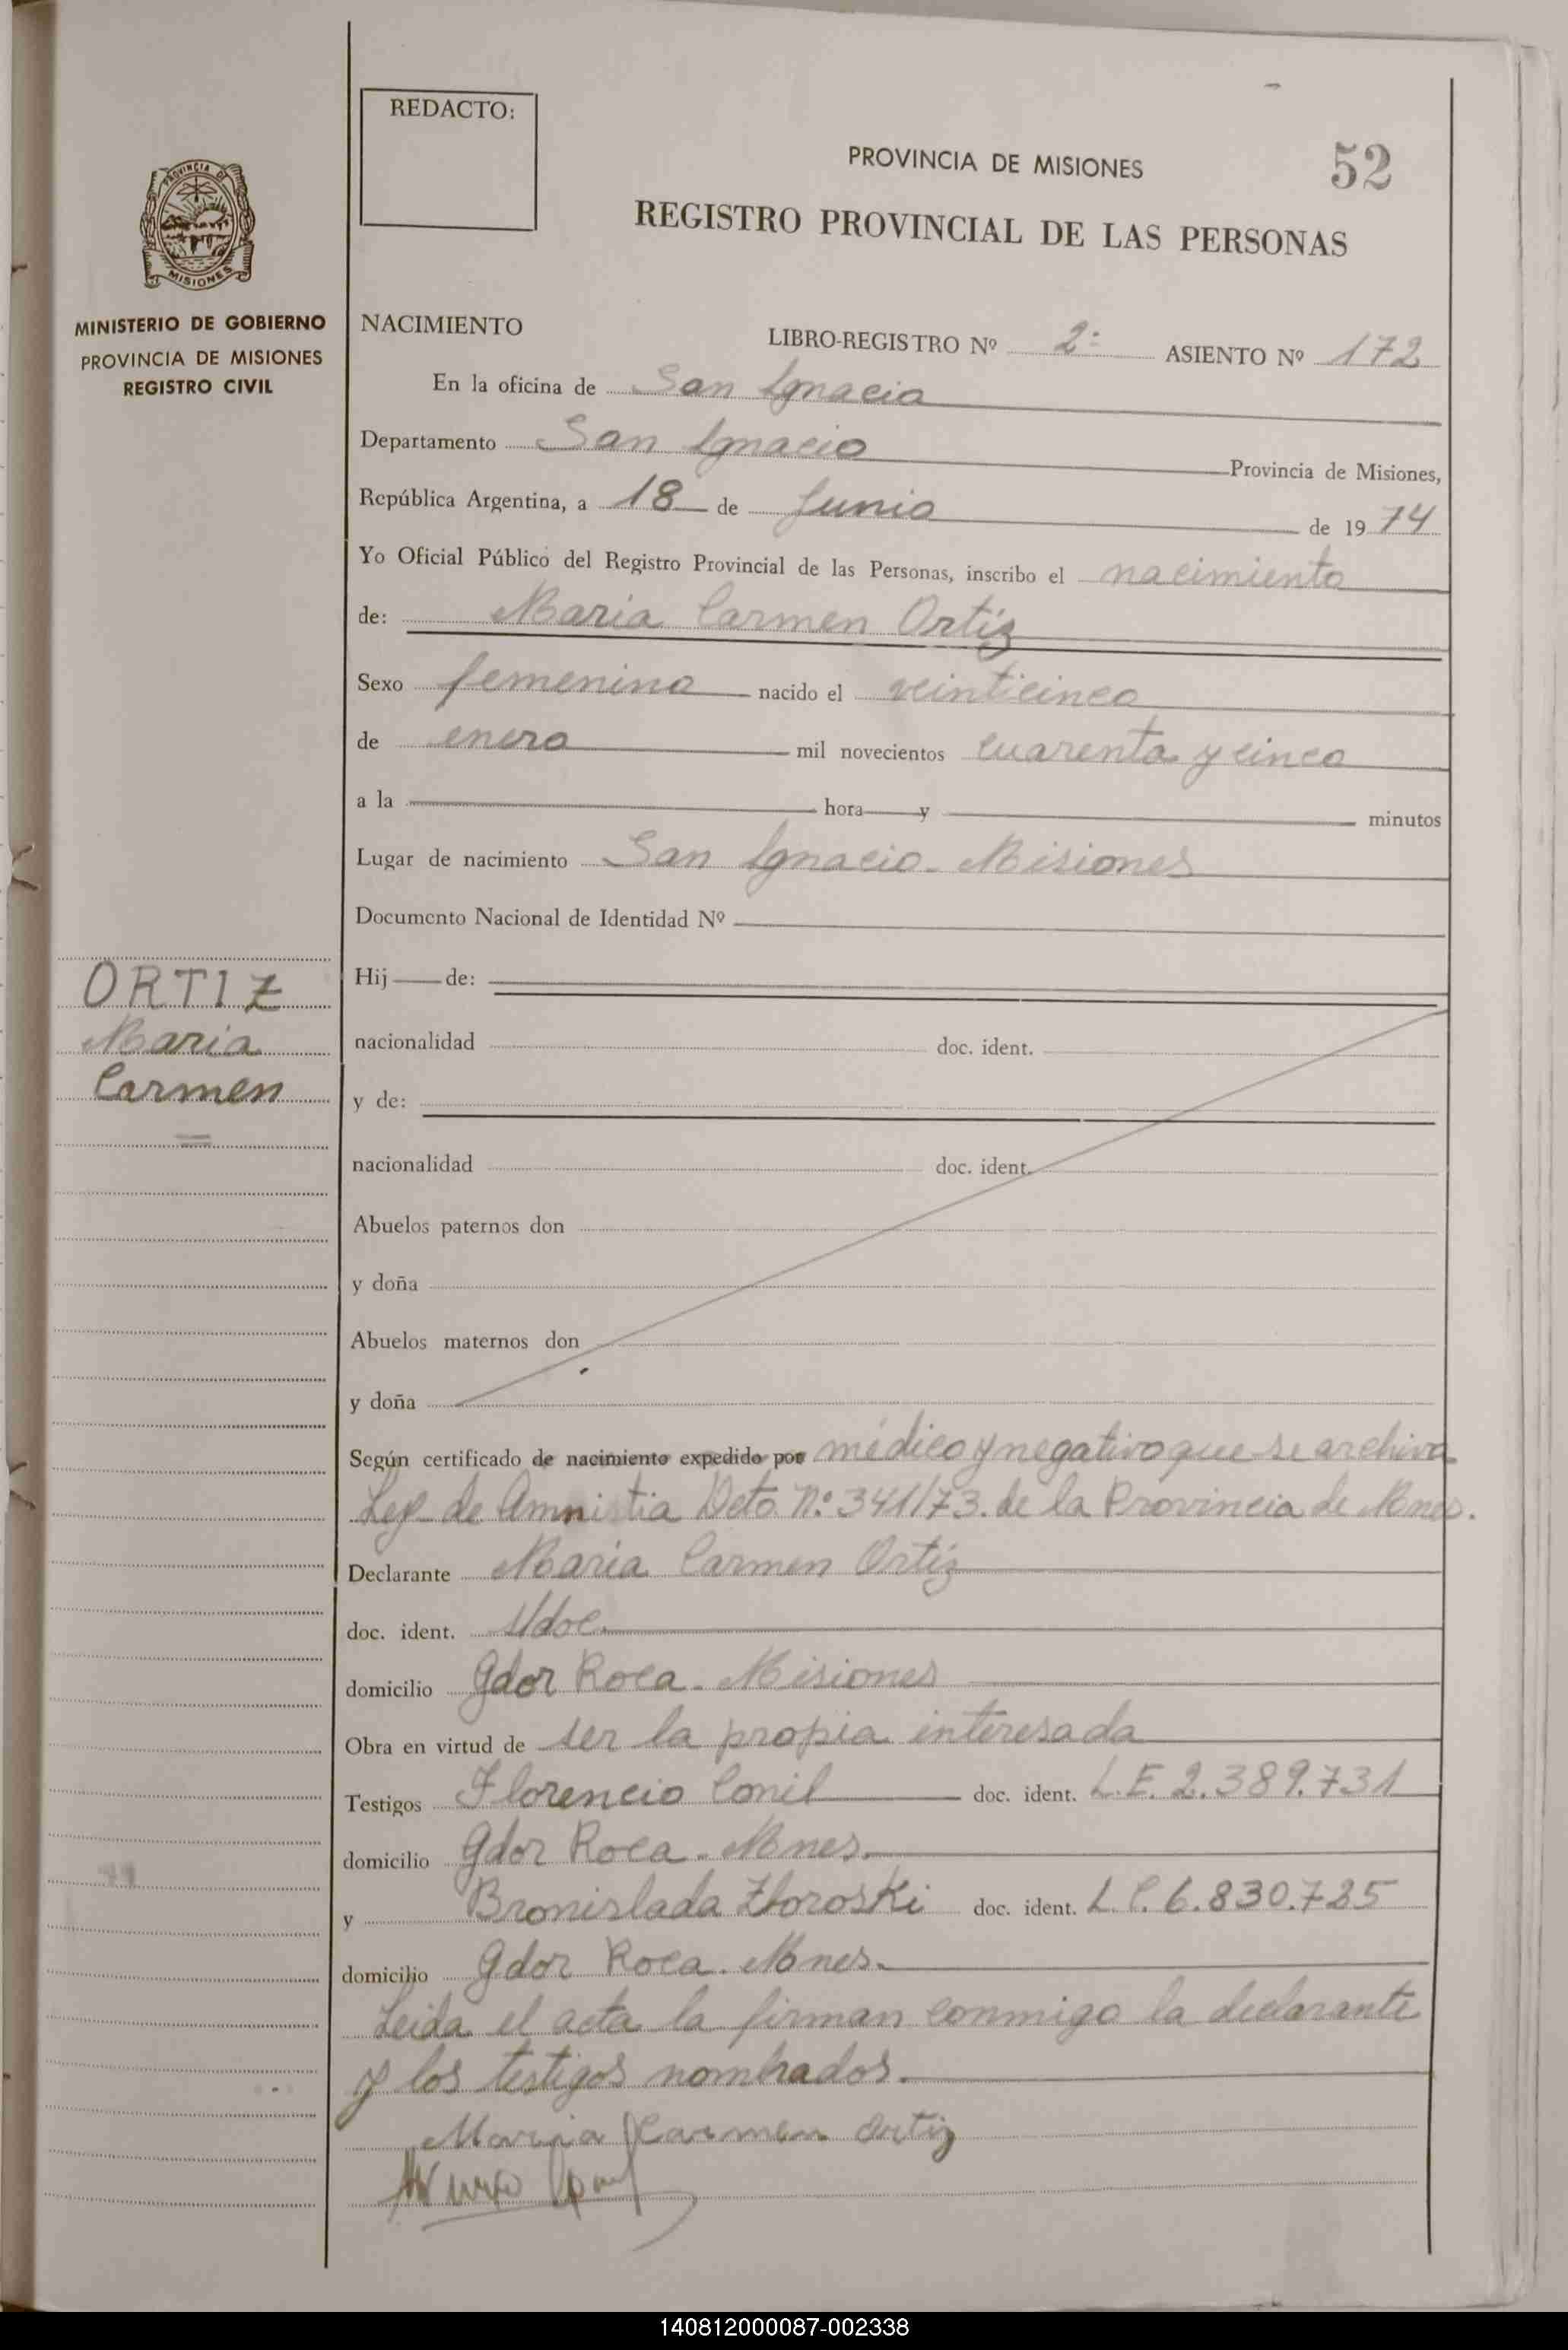 REDACTO:
PROVINCIA DE MISIONES
52
REGISTRO PROVINCIAL DE LAS PERSONAS
PROVINCIA DE
MISIONES
MINISTERIO DE GOBIERNO
PROVINCIA DE MISIONES
REGISTRO CIVIL
NACIMIENTO
LIBRO-REGISTRO Nº 2º ASIENTO Nº 172
En la oficina de San Ignacio
Departamento San Ignacio Provincia de Misiones,
República Argentina, a 18 de Junio de 19 74
Yo Oficial Público del Registro Provincial de las Personas, inscribo el nacimiento
de: Maria Carmen Ortíz
Sexo femenino nacido el veinticinco
de enero mil novecientos cuarenta y cinco
a la hora y minutos
Lugar de nacimiento San Ignacio - Misiones
Documento Nacional de Identidad Nº
ORTIZ
Maria
Carmen
Hij de:
nacionalidad doc. ident.
y de:
nacionalidad doc. ident.
Abuelos paternos don
y doña
Abuelos maternos don
y doña
Según certificado de nacimiento expedido por médico y negativo que se archiva
Ley de Amnistia Dcto. Nº 341/73. de la Provincia de Mnes.
Declarante Maria Carmen Ortíz
doc. ident.
domicilio Gdor Roca - Misiones
Obra en virtud de ser la propia interesada
Testigos Florencio Conil doc. ident. L.E. 2.389.731
domicilio Gdor Roca - Mnes.
y Bronislada doc. ident. L.C. 6.830.725
domicilio Gdor Roca - Mnes.
Leida el acta la firman conmigo la declarante
y los testigos nombrados.
Maria Carmen Ortiz
140812000087-002338